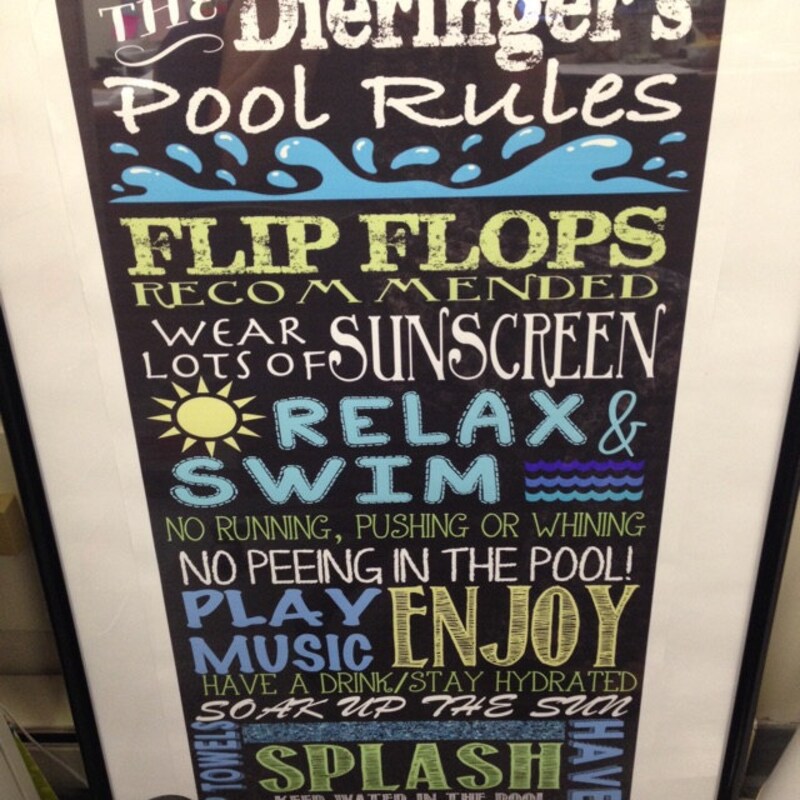 THE Dieringer's
Pool Rules
FLIP FLOPS
RECOMMENDED
WEAR LOTS OF SUNSCREEN
RELAX &
SWIM
NO RUNNING, PUSHING OR WHINING
NO PEEING IN THE POOL!
PLAY MUSIC ENJOY
HAVE A DRINK/STAY HYDRATED
SOAK UP THE SUN
TOWELS
SPLASH
HAVE
KEEP WATER IN THE POOL